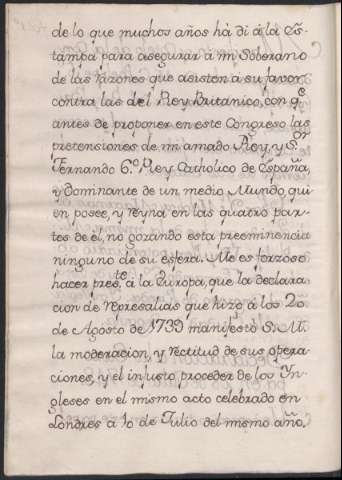 de lo que muchos años hà di à la Es-
tampa para asegurar à mi Soberano
de las razones que asisten à su favor
contra las del Rey Britanico, con q.e
antes de proponer en este Congreso las
pretensiones de mi amado Rey, y S.or
Fernando 6.o Rey Catholico de España,
y Dominante de un medio Mundo, qui
en posee, y reyna en las quatro par-
tes de el, no gozando esta preeminencia
ninguno de su esfera. Me es forzoso
hacer pres.te à la Europa, que la declara
cion de represalias que hizo à los 20
de Agosto de 1739 manifestò S. M.
la moderacion, y rectitud de sus opera-
ciones, y el injusto proceder de los Yn-
gleses en el mismo acto celebrado en
Londres à 10 de Julio del mismo año,